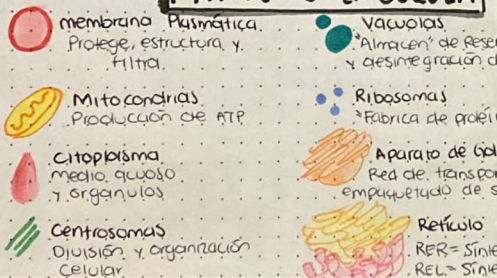 membrana Plasmática.
Protege, estructura y
Filtra.
Mitocondrias.
Producción de ATP
Citoplasma
medio acuoso
y organulos
Centrosomas
División y organización
celular
Vacuolas
"Almacen" de
y desintegración
Ribosomas
"Fabrica de
Aparato de
Red de
empaquetado de
Retículo
RER=
REL=